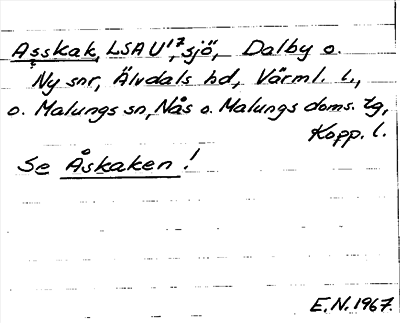 Asskak, LSA U¹⁷, sjö, Dalby o.
Ny snr, Älvdals hd, Värml. l.,
o. Malungs sn, Nås o. Malungs doms. tg,
Kopp. l.
Se Åskaken!
E.N. 1967.